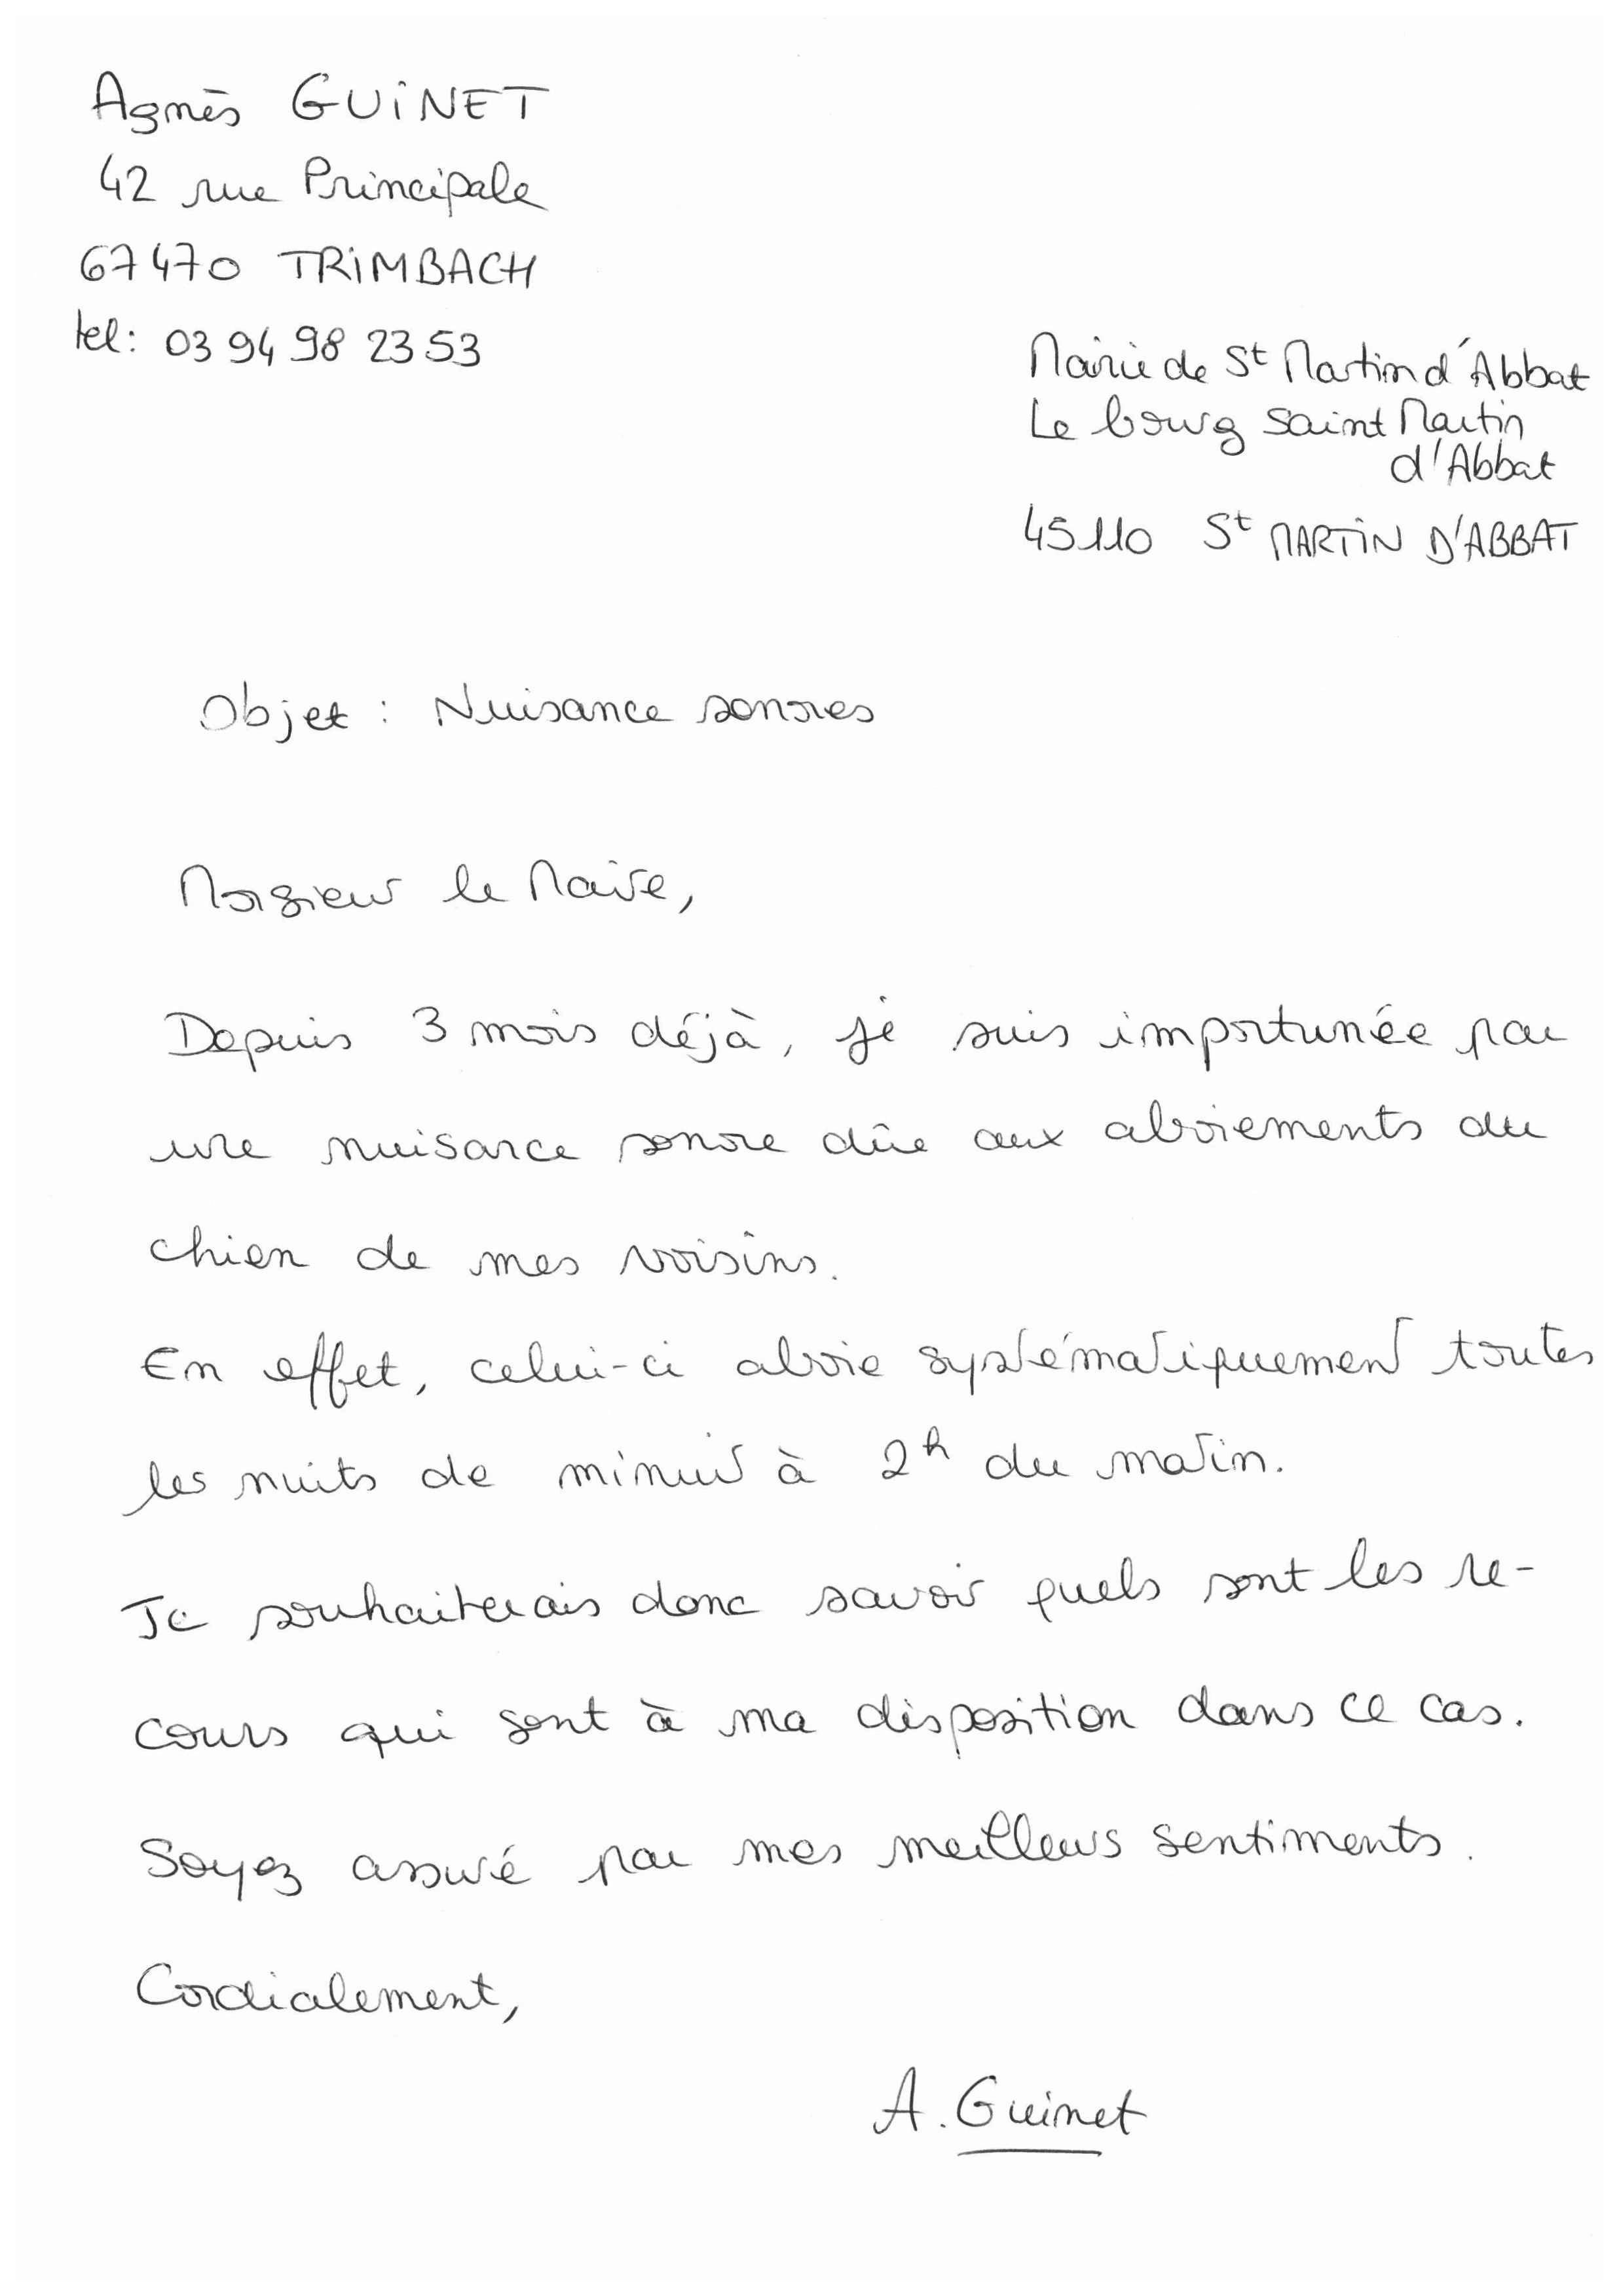 Agnès GUINET
42 rue Principale
67470 TRIMBACH
tel: 03 94 98 23 53
Mairie de St Martin d'Abbat
Le bourg Saint Martin
d'Abbat
45110 St MARTIN D'ABBAT
Objet : Nuisance sonores
Monsieur le Maire,
Depuis 3 mois déjà, je suis importunée par
une nuisance sonore dûe aux aboiements du
chien de mes voisins.
En effet, celui-ci aboie systématiquement toutes
les nuits de minuit à 2h du matin.
Je souhaiterais donc savoir quels sont les re-
cours qui sont à ma disposition dans ce cas.
Soyez assuré par mes meilleurs sentiments.
Cordialement,
A. Guinet